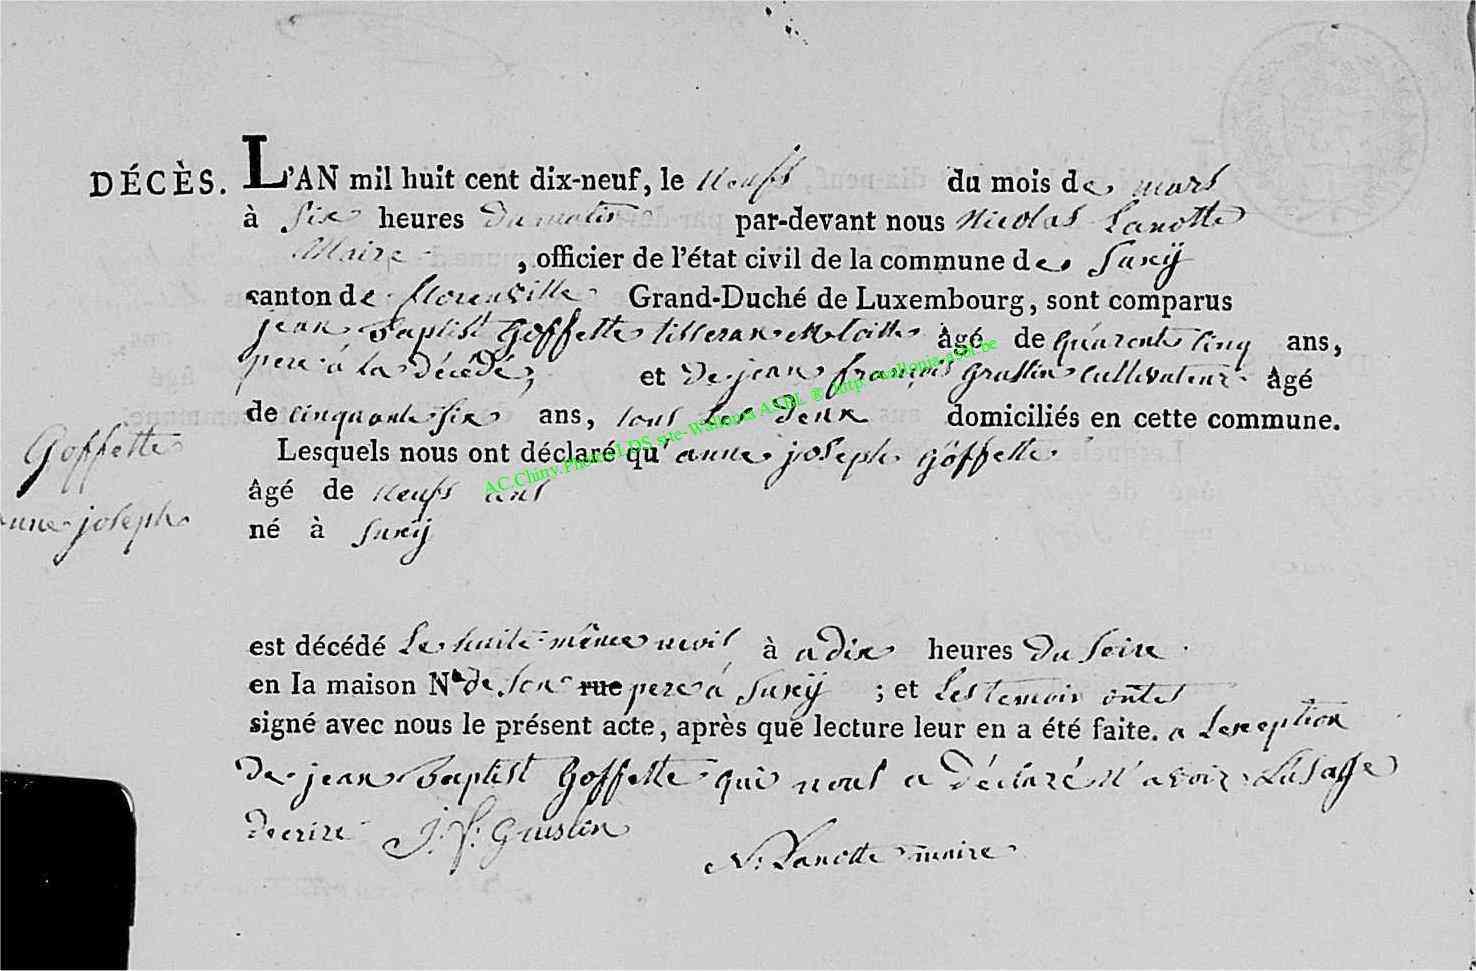 DÉCÈS. L'AN mil huit cent dix-neuf, le neufs du mois de mars
à six heures du matin par-devant nous Nicolas Lanotte
Maire, officier de l'état civil de la commune de Suxÿ
canton de florenville Grand-Duché de Luxembourg, sont comparus
jean Baptist Goffette tisseran âgé de quarente cinq ans,
pere à la décédé; et de jean françois Gruslin cultivateur âgé
de cinquante six ans, tous les deux domiciliés en cette commune.
Lesquels nous ont déclaré qu'anne joseph goffette
âgé de neufs ans
né à Suxÿ
Goffette
anne joseph
est décédé le huit même mois à a dix heures du soire
en la maison N° de son rue pere à Suxÿ ; et les temoin ontes
signé avec nous le présent acte, après que lecture leur en a été faite. a lexception
de jean Baptist Goffette qui nous a déclaré n'avoir lusage
decrire J. f. Gruslin
N. Lanotte maire
AC.Chiny.Photo.LDS site-Wallonia ASBL ® http://wallonia-asbl.be